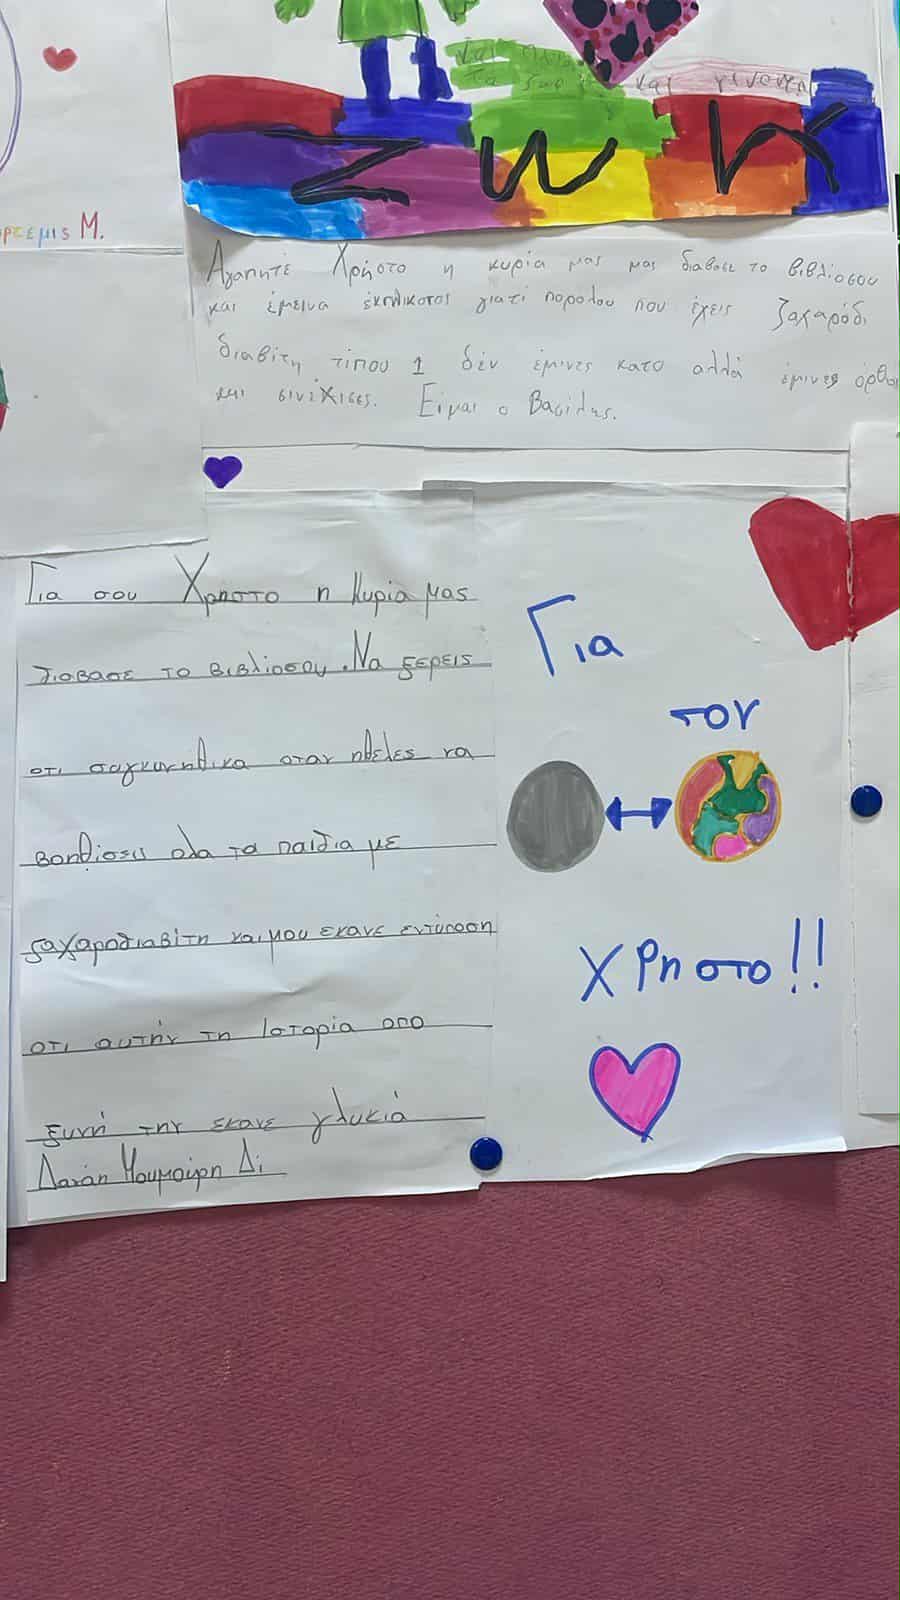 ρτεμις Μ.
και γίνονται
ΖωΗ
Αγαπητέ Χρήστο η κυρία μας μας διάβασε το βιβλίοσου
και έμεινα έκπλικοτος γιατί πορόλου που έχεις ζαχαρόδι
διαβίτη τίπου 1 δέν έμινες κατο αλλά έμινες όρθοι
και σινέχισες. Είμαι ο Βασίλης.
Για σου Χρήστο η Κυρία μας
διαβασε το βιβλίοσου. Να ξερεις
οτι σαγκινηθικα οταν ηθελες να
βοηθίσεις ολα τα παιδια με
ζαχαροδιαβίτη και μου εκανε εντύποση
οτι αυτήν τη Ιστορία απο
ξυνή την εκανε γλυκιά
Δι
Για
τον
ΧΡηστο!!